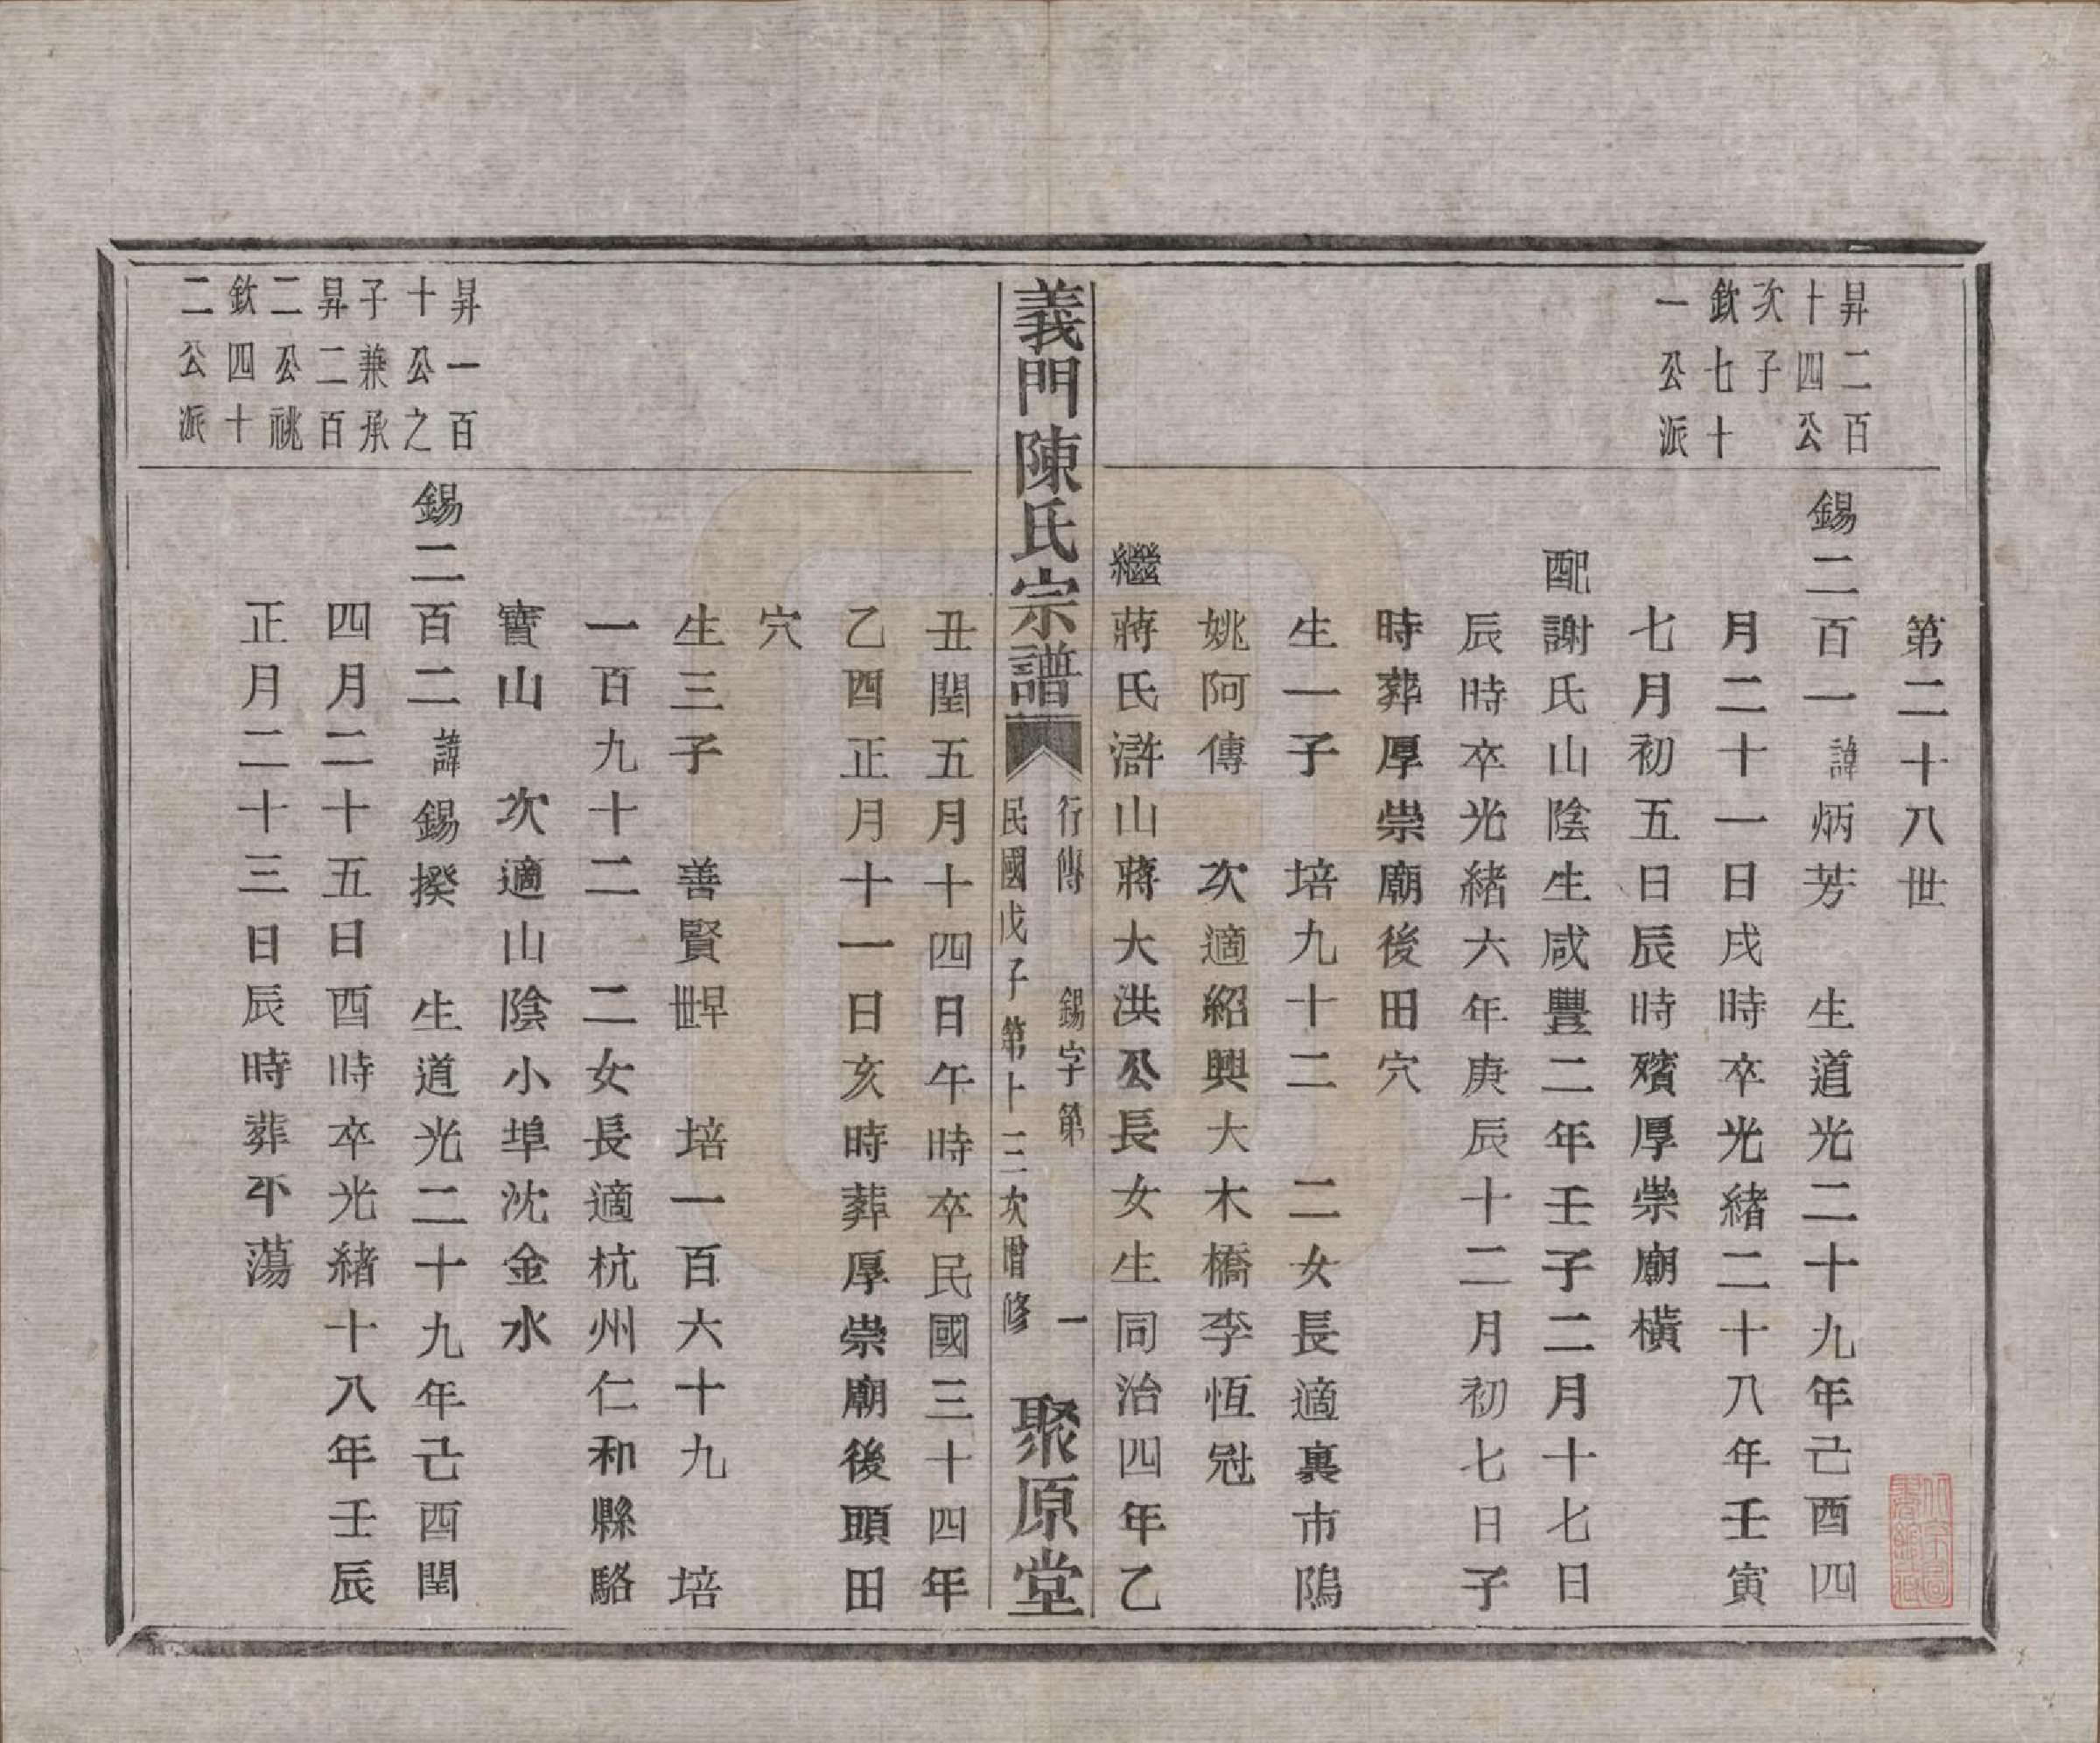 昇二百
十四公
次子
欽七十
一公派
第二十八世
錫二百一諱炳芳　生道光二十九年己酉四
月二十一日戌時卒光緒二十八年壬寅
七月初五日辰時殯厚崇廟橫
配謝氏山陰生咸豐二年壬子二月十七日
辰時卒光緒六年庚辰十二月初七日子
時葬厚崇廟後田穴
生一子　培九十二　二女長適裏市隖
姚阿傳　次適紹興大木橋李恆冠
繼蔣氏滸山蔣大洪公長女生同治四年乙
義門陳氏宗譜
行傳　錫字第　一
民國戊子第十三次增修
聚原堂
丑閏五月十四日午時卒民國三十四年
乙酉正月十一日亥時葬厚崇廟後頭田
穴
生三子　善賢早世　培一百六十九　培
一百九十二　二女長適杭州仁和縣駱
寶山　次適山陰小埠沈金水
昇一百
十公之
子兼承
昇二百
二公祧
欽四十
二公派
錫二百二諱錫揆　生道光二十九年己酉閏
四月二十五日酉時卒光緒十八年壬辰
正月二十三日辰時葬不蕩